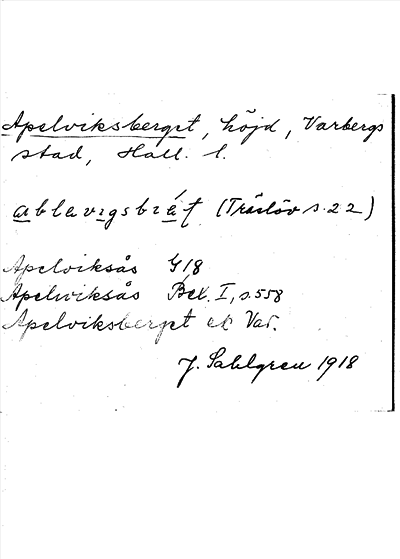 Apelviksberget, höjd, Varbergs
stad, Hall. l.
(Träslöv s. 22)
Apelviksås G 18
Apelwiksås Bex. I, s. 558
Apelviksberget ek Var.
J. Sahlgren 1918